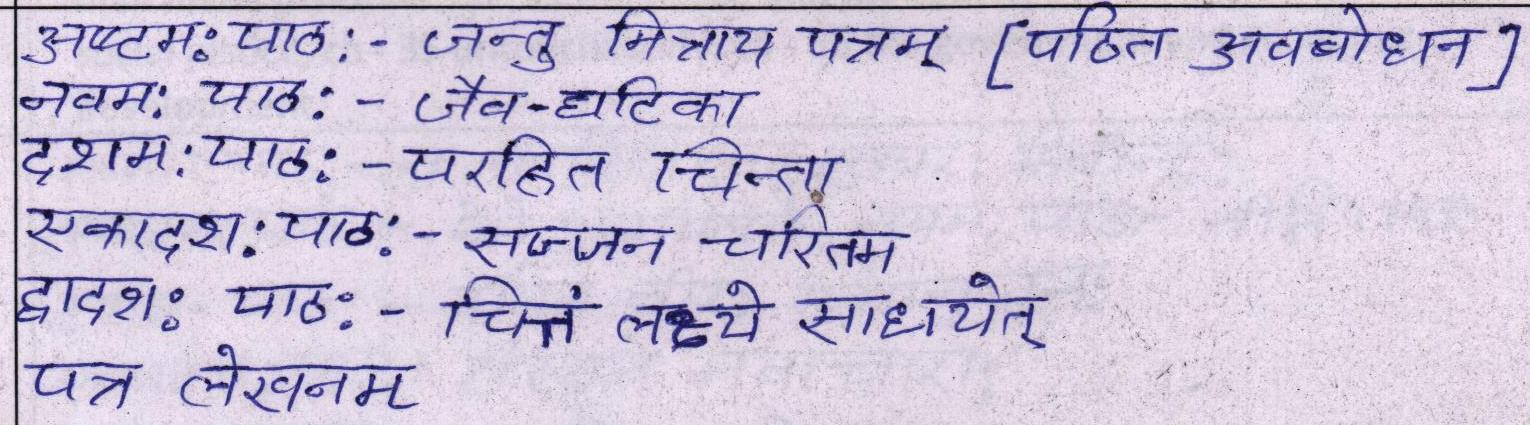 अष्टमः पाठः - जन्तु मित्राय पत्रम् [पठित अवबोधन]
नवमः पाठः - जैव-घटिका
दशमः पाठः - परहित चिन्ता
एकादशः पाठः - सज्जन चरितम
द्वादशः पाठः - चित्तं लक्ष्ये साधयेत्
पत्र लेखनम